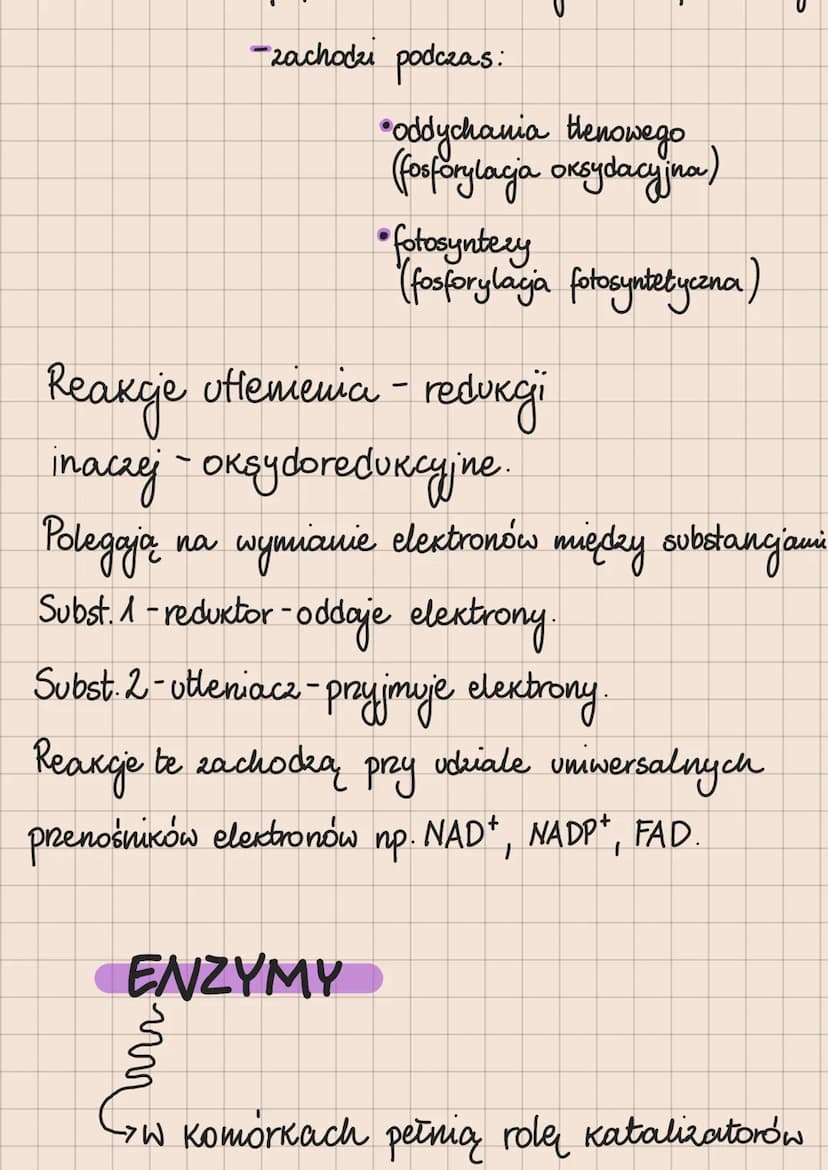 -zachodzi podczas:
•oddychania tlenowego
(fosforylacja oksydacyjna)
•fotosyntezy
(fosforylacja fotosyntetyczna)
Reakcje utlenienia - redukcji
inaczej - oksydoredukcyjne.
Polegają na wymianie elektronów między substancjami
Subst. 1 - reduktor - oddaje elektrony.
Subst. 2 - utleniacz - przyjmuje elektrony.
Reakcje te zachodzą przy udziale uniwersalnych
przenośników elektronów np. NAD⁺, NADP⁺, FAD.
ENZYMY
→w komórkach pełnią rolę katalizatorów